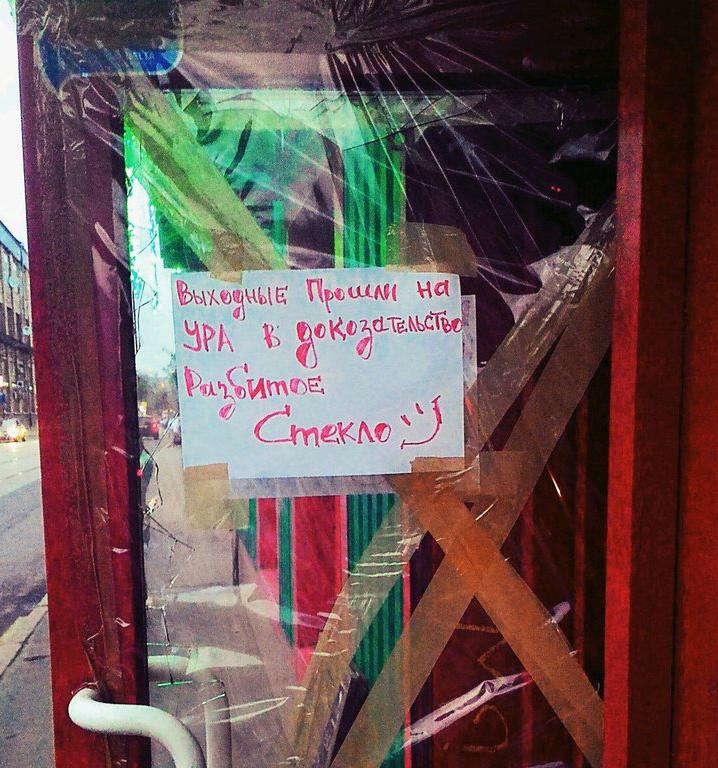 Выходные Прошли на
УРА в докозательство
Разбитое
Стекло :)